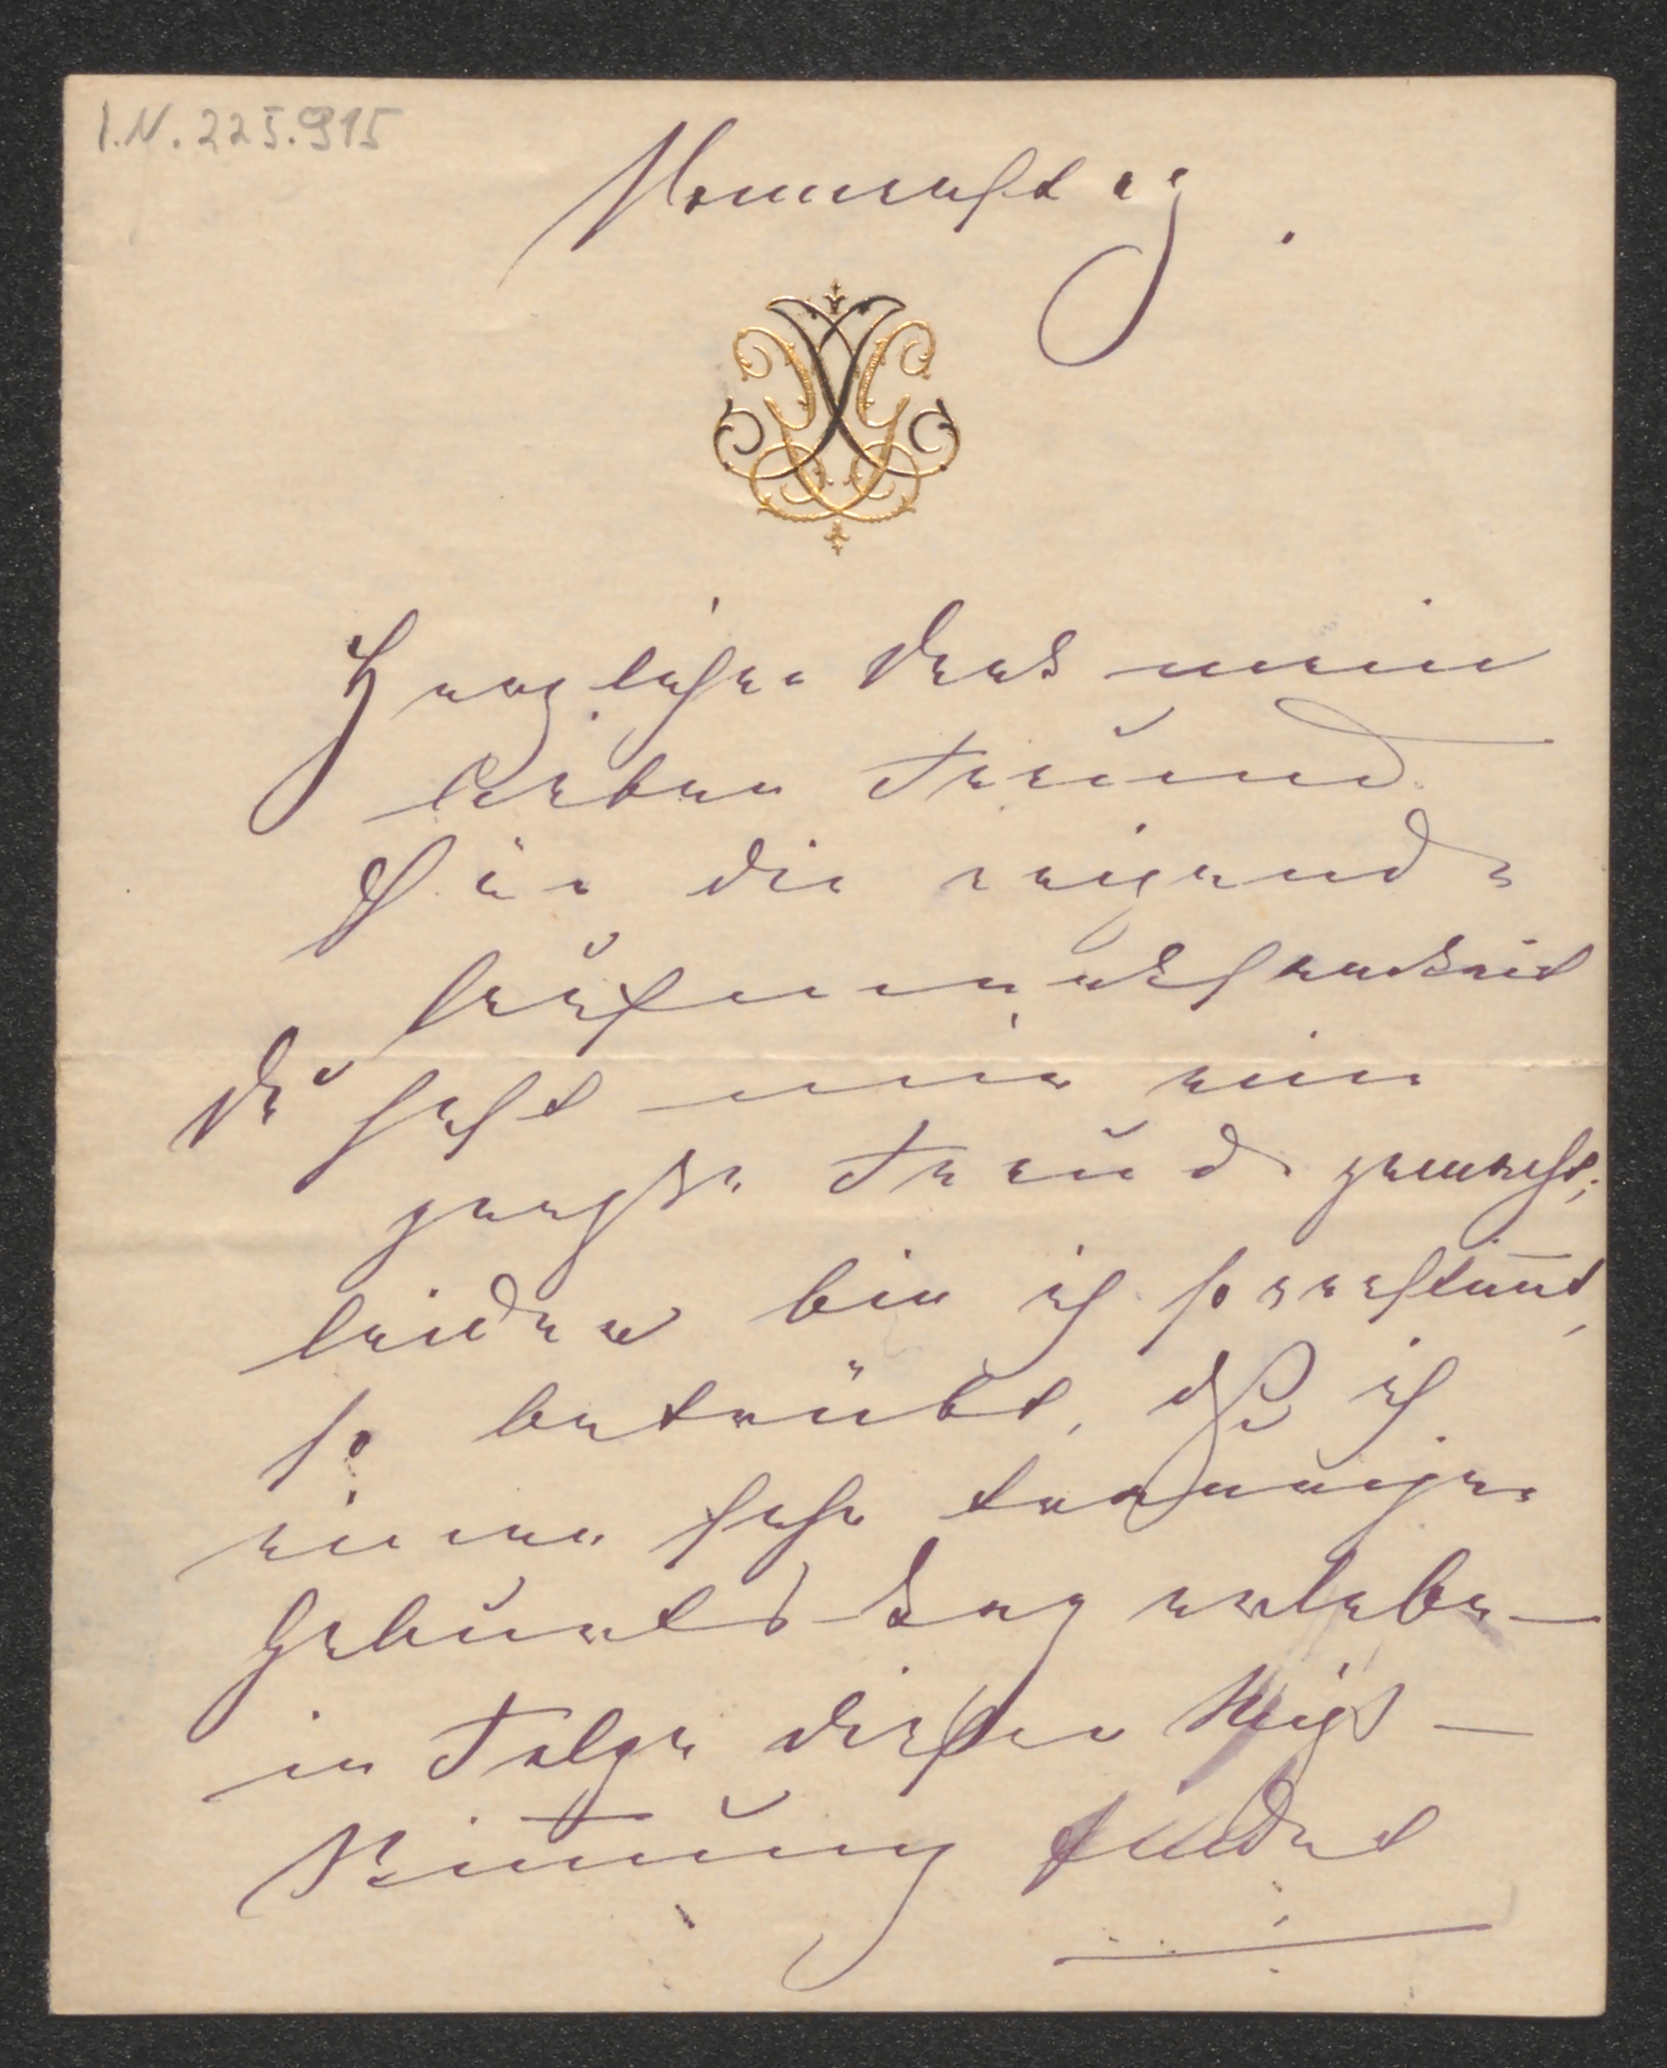 I.N. 225.915
Donnerstag.
Herzlichen Dank mein
lieber Freund
für die reizende
Aufmerksamkeit
Du hast mir eine
große Freude gemacht,
leider bin ich so verstimmt,
so betrübt, daß ich
einen sehr traurigen
Geburtstag erlebe —
in Folge dieser
Stimmung findet